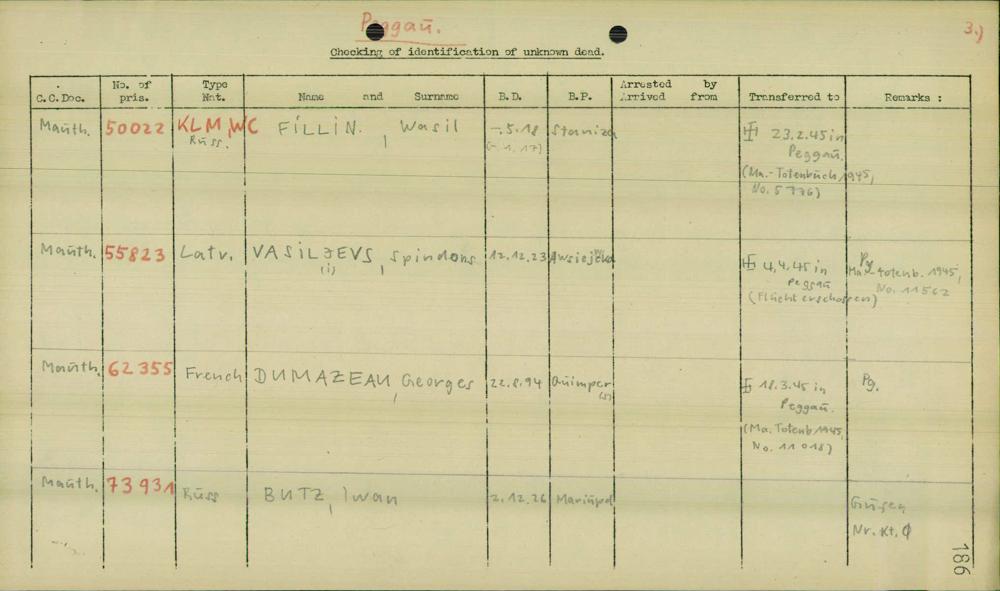 Peggau.
3.)
Checking of identification of unknown dead.
C.C.Doc. No. of pris. Type Nat. Name and Surname B.D. B.P. Arrested by Arrived from Transferred to Remarks :
Mauth. 50022 KLM, WC FILLIN, Wasil –.5.18 Staniza 23.2.45 in
Russ. Peggau.
(Ma.-Totenbuch 1945,
No. 5776)
Mauth. 55823 Latv. VASILJEVS, Spindons 12.12.23 4.4.45 in Pg
(i) Peggau Ma.-Totenb. 1945,
(Flucht erschossen) No. 11562
Mauth. 62355 French DUMAZEAU, Georges 22.8.94 Quimper 18.3.45 in Pg.
(s) Peggau.
(Ma. Totenb. 1945,
No. 11018)
Mauth. 73931 Russ BUTZ, Iwan 2.12.26 Mariupol
Gusen
Nr. Kt. Ø
186